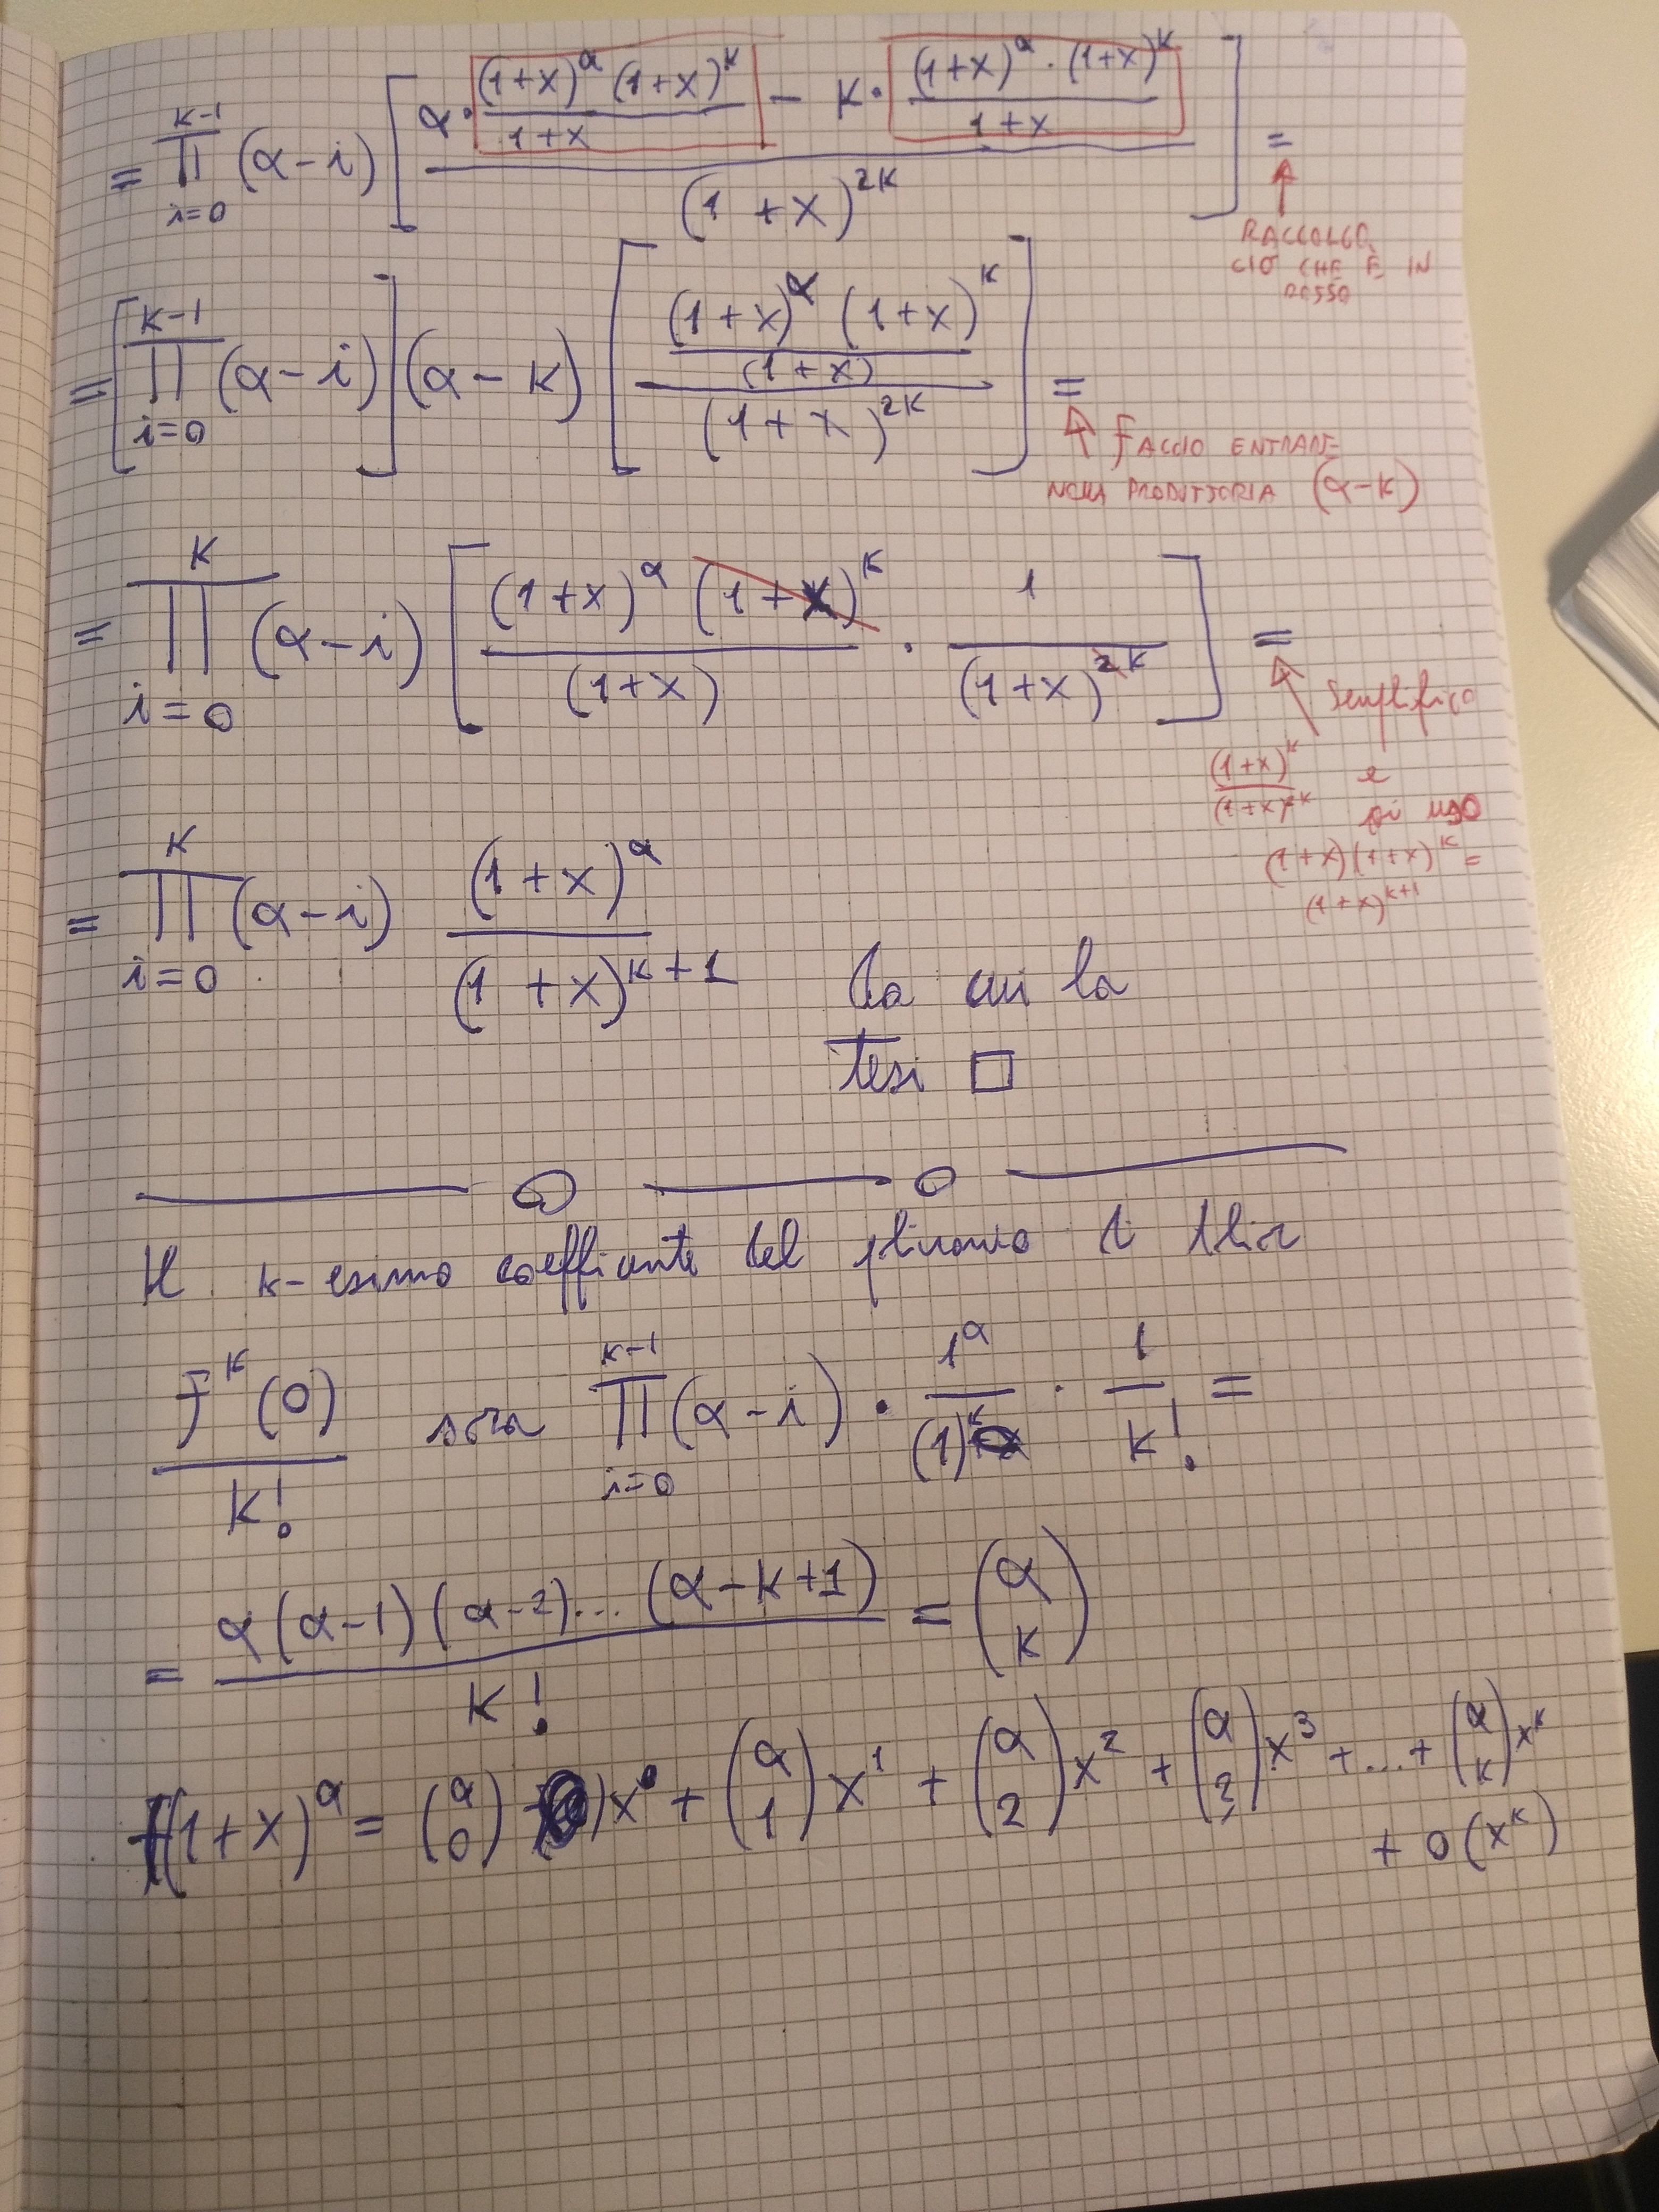 = ∏_{i=0}^{k-1} (α-i) [ (α · ((1+x)^α (1+x)^k)/(1+x) - k · ((1+x)^α · (1+x)^k)/(1+x)) / (1+x)^{2k} ] =
RACCOLGO
CIÒ CHE È IN
ROSSO
= [ ∏_{i=0}^{k-1} (α-i) ] (α-k) [ ((1+x)^α (1+x)^k / (1+x)) / (1+x)^{2k} ] =
FACCIO ENTRARE
NELLA PRODUTTORIA (α-k)
= ∏_{i=0}^{k} (α-i) [ ((1+x)^α (1+x)^k) / (1+x) · 1/(1+x)^{2k} ] =
Semplifico
(1+x)^k / (1+x)^{2k} e
poi uso
(1+x)(1+x)^k =
(1+x)^{k+1}
= ∏_{i=0}^{k} (α-i) (1+x)^α / (1+x)^{k+1}
da cui la
tesi □
Il k-esimo coefficiente del polinomio di
f^k(0)/k! sarà ∏_{i=0}^{k-1} (α-i) · 1^α/(1)^k · 1/k! =
= α(α-1)(α-2)...(α-k+1) / k! = (α k)
(1+x)^α = (α 0) x^0 + (α 1) x^1 + (α 2) x^2 + (α 3) x^3 + ... + (α k) x^k
+ o(x^k)